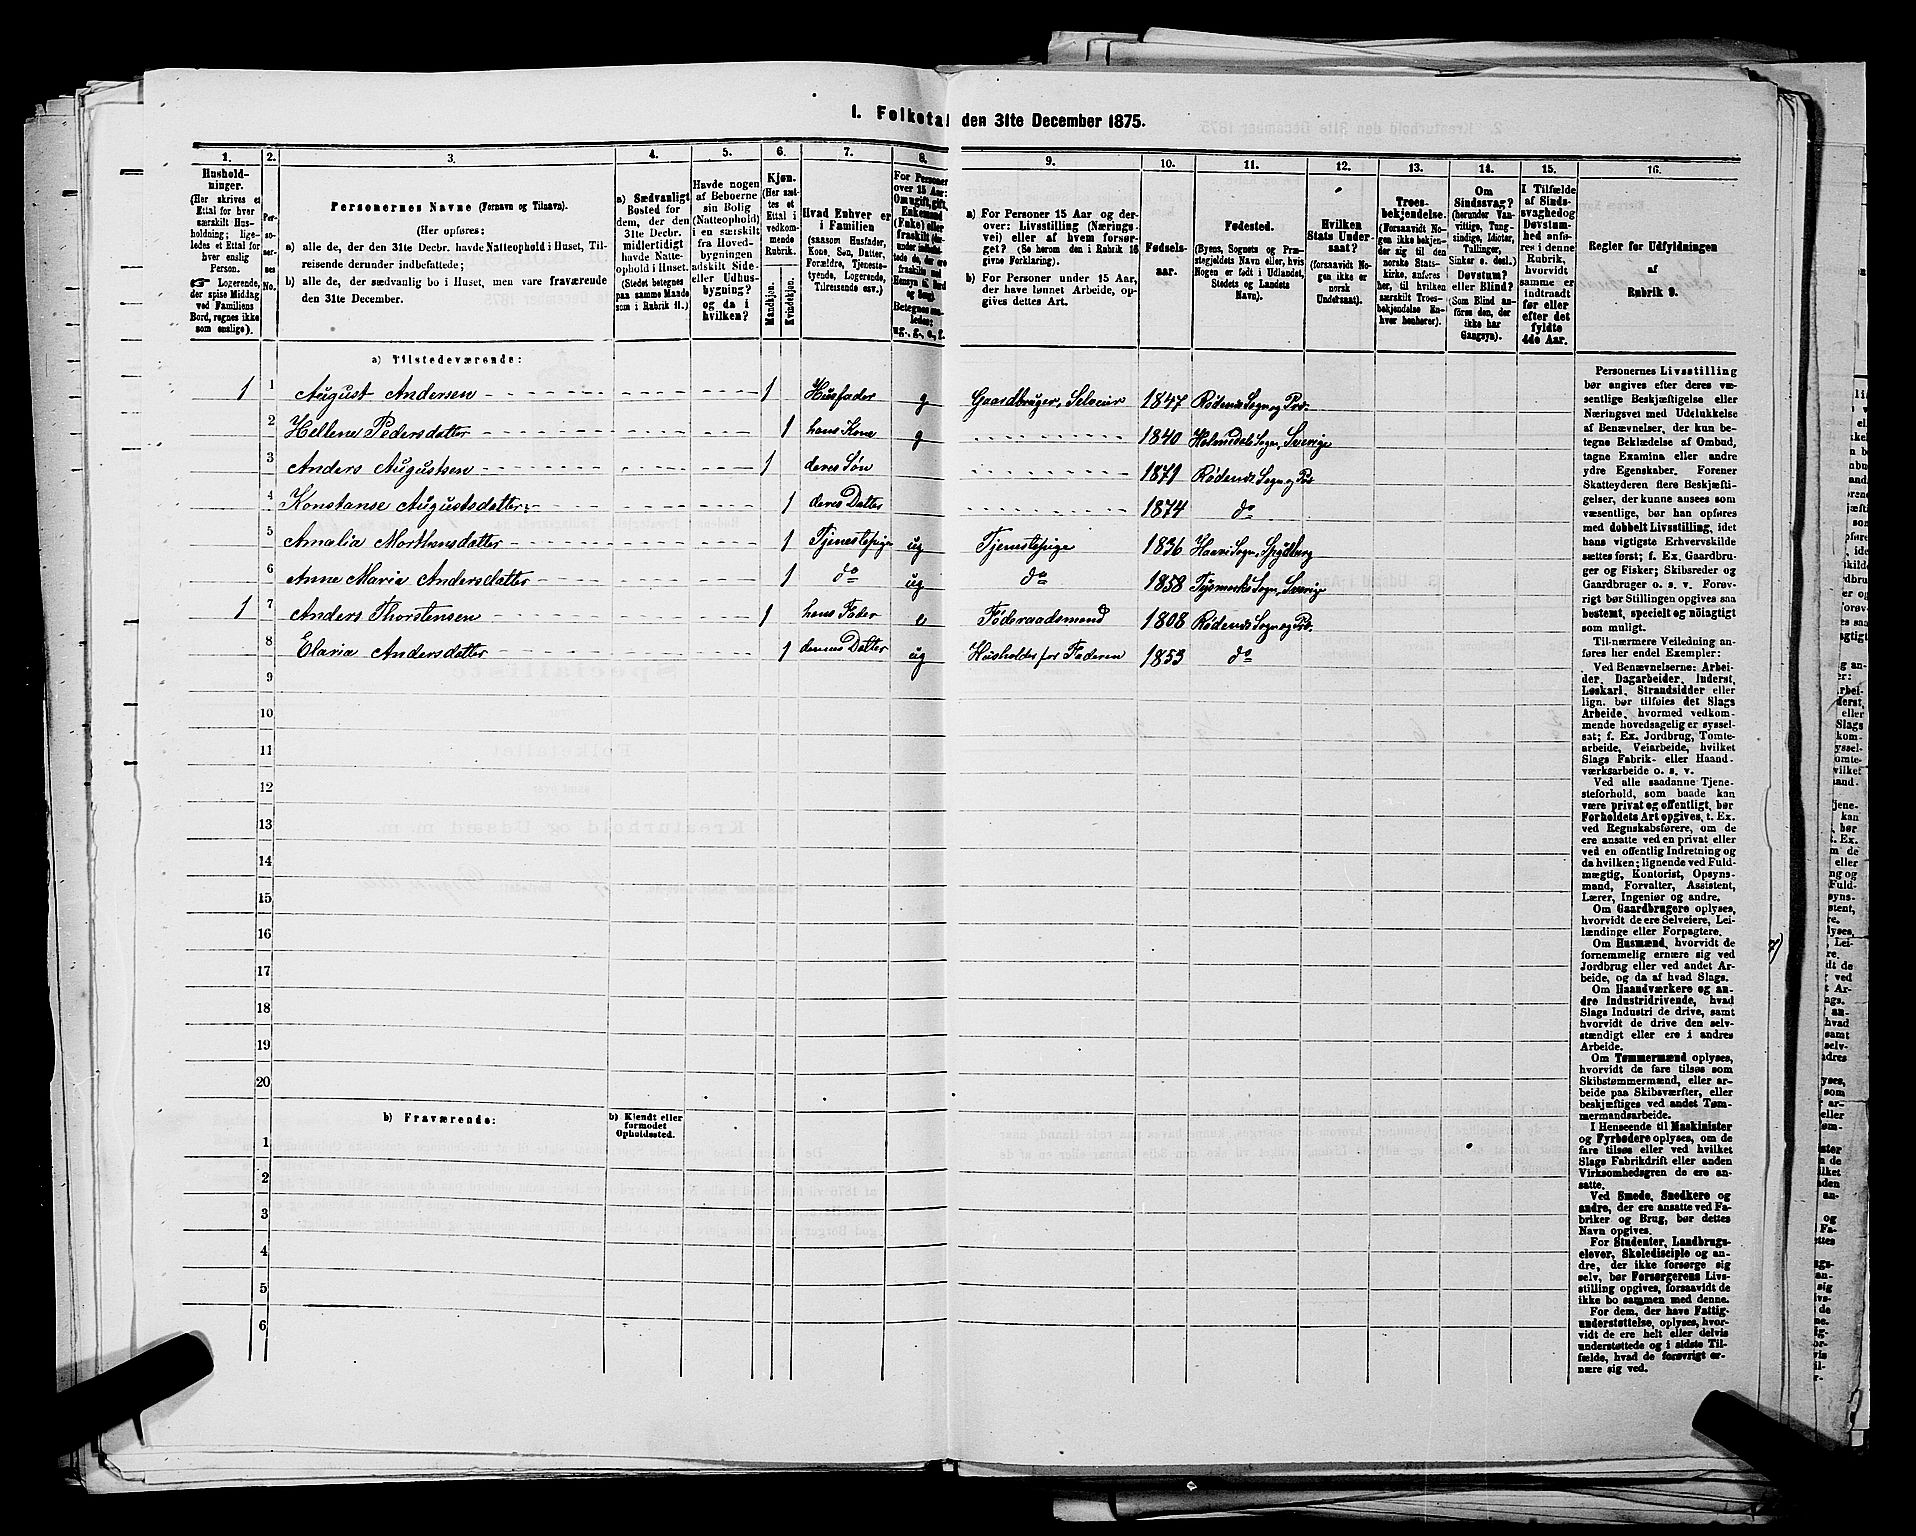 1. Folketal den 31te December 1875.
1. 2. 3. 4. 5. 6. 7. 8. 9. 10. 11. 12. 13. 14. 15. 16.
Hushold-
ninger.
(Her skrives et
Ettal for hver
særskilt Hus-
holdning; lige-
ledes et Ettal for
hver enslig
Person.
Logerende,
der spise Middag
ved Familiens
Bord, regnes ikke
som enslige).
Per-
so-
ner-
nes
No.
Personernes Navne (Fornavn og Tilnavn).
(Her opføres:
a) alle de, der den 31te Decbr. havde Natteophold i Huset, Til-
reisende derunder indbefattede;
b) alle de, der sædvanlig bo i Huset, men vare fraværende
den 31te December.
a) Sædvanligt
Bosted for
dem, der den
31te Decbr.
midlertidigt
havde Natte-
ophold i Huset.
(Stedet betegnes
paa samme Maade
som i Rubrik 11.)
Havde nogen
af Beboerne
sin Bolig
(Natteophold)
i en særskilt
fra Hoved-
bygningen
adskilt Side-
eller Udhus-
bygning?
og da i
hvilken?
Kjøn.
(Her sæt-
tes et
Ettal i
vedkom-
mende
Rubrik.
Mandkjøn.
Kvindekjøn.
Hvad Enhver er
i Familien
(saasom Husfader,
Kone, Søn, Datter,
Forældre, Tjeneste-
tyende, Logerende,
Tilreisende osv.)
For Personer
over 15 Aar:
Om ugift, gift,
Enkemand
(Enke) eller
fraskilt
Betegnes saa-
ledes:
ug., g., e., f.
a) For Personer 15 Aar og der-
over: Livsstilling (Nærings-
vei) eller af hvem forsør-
get? (Se herom den i Rubrik 16
givne Forklaring).
b) For Personer under 15 Aar,
der have lønnet Arbeide, op-
gives dettes Art.
Fødsels-
aar.
Fødested.
(Byens, Sognets og Præ-
stegjeldets Navn eller, hvis
Nogen er født i Udlandet,
Stedets og Landets
Navn).
Hvilken
Stats Under-
saat?
(forsaavidt No-
gen ikke er
norsk
Undersaat).
Troes-
bekjendelse.
(Forsaavidt No-
gen ikke bekjen-
der sig til den
norske Stats-
kirke, anføres
her, til hvilken
særskilt Troes-
bekjendelse En-
hver henhører).
Om
Sindssvag?
(herunder Van-
vittige, Tung-
sindige, Idioter,
Tullinger,
Sinker o. desl.)
Døvstum?
eller Blind?
(Som Blind an-
føres den, der
ikke har
Gangsyn).
I Tilfælde
af Sinds-
svaghed og
Døvstum-
hed anfø-
res i denne
Rubrik,
hvorvidt
samme er
indtraadt
før eller
efter det
fyldte
4de Aar.
Regler for Udfyldningen
af
Rubrik 9.
a) Tilstedeværende:
1 1 August Andersen 1 Husfader g Gaardbruger, Selveier 1847 Rødenæs Sogn og Præ.
2 Hellene Pedersdatter 1 hans Kone g 1840 Holmedals Sogn, Sverige
3 Anders Augustsen 1 deres Søn 1871 Rødenæs Sogn og Præ.
4 Konstanse Augustsdatter 1 deres Datter 1874 do
5 Amalia Morthensdatter 1 Tjenestepige ug Tjenestepige 1836 Sogn, Spydberg
6 Anne Maria Andersdatter 1 do ug do 1858 Sogn, Sverige
1 7 Anders Thorstensen 1 hans Fader e Føderaadsmand 1808 Rødenæs Sogn og Præ.
8 Elaria Andersdatter 1 dennes Datter ug Husholder for Faderen 1853 do
9
10
11
12
13
14
15
16
17
18
19
20
b) Fraværende:
b) Kjendt eller
formodet
Opholdssted.
1
2
3
4
5
6
Personernes Livsstilling
bør angives efter deres væ-
sentlige Beskjæftigelse eller
Næringsvei med Udelukkelse
af Benævnelser, der kun be-
tegne Beklædelse af Ombud,
tagne Examina eller andre
ydre Egenskaber. Forener
Skatteyderen flere Beskjæfti-
gelser, der kunne ansees som
væsentlige, bør han opføres
med dobbelt Livsstilling, idet
hans vigtigste Erhvervskilde
sættes først; f. Ex. Gaardbru-
ger og Fisker; Skibsreder og
Gaardbruger o. s. v. Forøv-
rigt bør Stillingen opgives saa
bestemt, specielt og nøiagtigt
som muligt.
Til nærmere Veiledning an-
føres her endel Exempler:
Ved Benævnelserne: Arbei-
der, Dagarbeider, Inderst,
Løskarl, Strandsidder eller
lign. bør tilføies det Slags
Arbeide, hvormed vedkom-
mende hovedsagelig er syssel-
sat; f. Ex. Jordbrug, Tomte-
arbeide, Veiarbeide, hvilket
Slags Fabrik- eller Haand-
værksarbeide o. s. v.
Ved alle saadanne Tjene-
steforhold, som baade kan
være privat og offentligt, bør
Forholdets Art opgives, t. Ex.
ved Regnskabsførere, om de
ere ansatte ved en privat eller
ved en offentlig Indretning og
da hvilken; lignende ved Fuld-
mægtig, Kontorist, Opsyns-
mand, Forvalter, Assistent,
Lærer, Ingeniør og andre.
Om Gaardbrugere oplyses,
hvorvidt de ere Selveiere, Lei-
lændinge eller Forpagtere.
Om Husmænd, hvorvidt de
fornemmelig ernære sig ved
Jordbrug eller ved andet Ar-
beide, og da af hvad Slags.
Om Haandværkere og an-
dre Industridrivende, hvad
Slags Industri de drive, samt
hvorvidt de drive den selv-
stændigt eller ere i andres
Arbeide.
Om Tømmermænd oplyses,
hvorvidt de fare tilsøs som
Skibstømmermænd, eller ar-
beide paa Skibsværfter, eller
beskjæftiges ved andet Tøm-
mermandsarbeide.
I Henseende til Maskinister
og Fyrbødere oplyses, om de
fare tilsøs eller ved hvilket
Slags Fabrikdrift eller anden
Virksomhedsgren de ere an-
satte.
Ved Smede, Snedkere og
andre, der ere ansatte ved Fa-
briker og Brug, bør dettes
Navn opgives.
For Studenter, Landbrugs-
elever, Skoledisciple og an-
dre, der ikke forsørge sig
selv, bør Forsørgerens Livs-
stilling opgives, forsaavidt de
ikke bo sammen med denne.
For dem, der have Fattig-
understøttelse, oplyses, hvor-
vidt de ere helt eller delvis
understøttede og i sidste Til-
fælde, hvad de forøvrigt er-
nære sig ved.